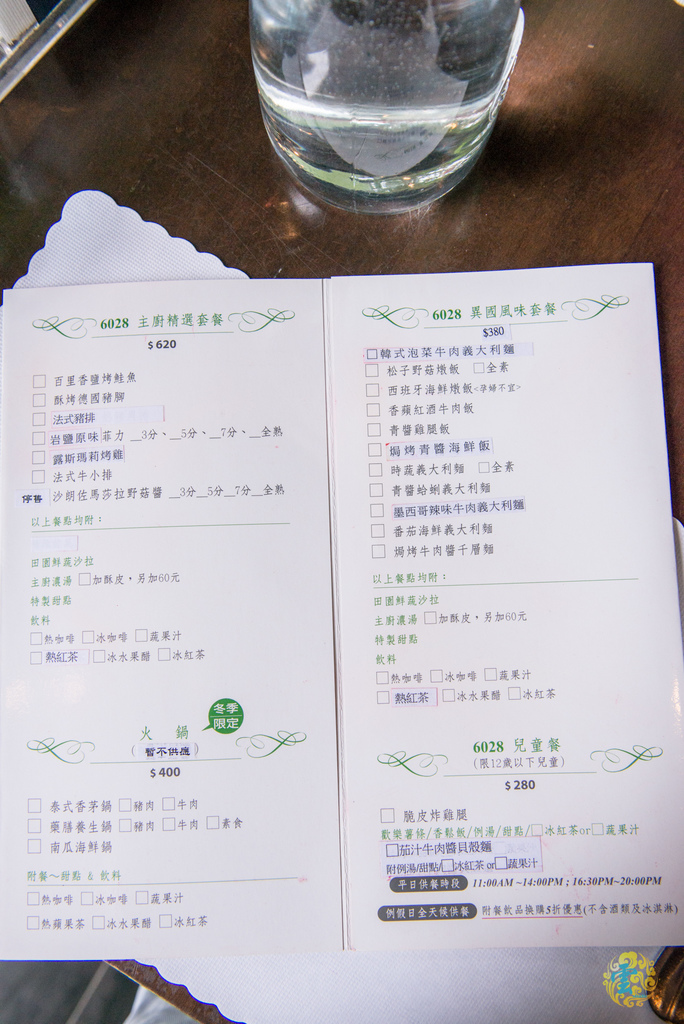 6028 主廚精選套餐
$620
□ 百里香鹽烤鮭魚
□ 酥烤德國豬腳
□ 法式豬排
□ 岩鹽原味菲力 __3分、__5分、__7分、__全熟
□ 露斯瑪莉烤雞
□ 法式牛小排
停售 沙朗佐馬莎拉野菇醬 __3分__5分__7分__全熟
以上餐點均附：
田園鮮蔬沙拉
主廚濃湯 □加酥皮，另加60元
特製甜點
飲料
□熱咖啡 □冰咖啡 □蔬果汁
□熱紅茶 □冰水果醋 □冰紅茶
冬季
限定
火 鍋
( 暫不供應 )
$400
□ 泰式香茅鍋 □豬肉 □牛肉
□ 藥膳養生鍋 □豬肉 □牛肉 □素食
□ 南瓜海鮮鍋
附餐～甜點 & 飲料
□熱咖啡 □冰咖啡 □蔬果汁
□熱蘋果茶 □冰水果醋 □冰紅茶
6028 異國風味套餐
$380
□韓式泡菜牛肉義大利麵
□ 松子野菇燉飯 □全素
□ 西班牙海鮮燉飯<孕婦不宜>
□ 香蘋紅酒牛肉飯
□ 青醬雞腿飯
□ 焗烤青醬海鮮飯
□ 時蔬義大利麵 □全素
□ 青醬蛤蜊義大利麵
□ 墨西哥辣味牛肉義大利麵
□ 番茄海鮮義大利麵
□ 焗烤牛肉醬千層麵
以上餐點均附：
田園鮮蔬沙拉
主廚濃湯 □加酥皮，另加60元
特製甜點
飲料
□熱咖啡 □冰咖啡 □蔬果汁
□熱紅茶 □冰水果醋 □冰紅茶
6028 兒童餐
(限12歲以下兒童)
$280
□ 脆皮炸雞腿
歡樂薯條/香鬆飯/例湯/甜點/□冰紅茶or□蔬果汁
□茄汁牛肉醬貝殼麵
附例湯/甜點/□冰紅茶 or□蔬果汁
平日供餐時段 11:00AM ~14:00PM ; 16:30PM~20:00PM
例假日全天候供餐 附餐飲品換購5折優惠(不含酒類及冰淇淋)